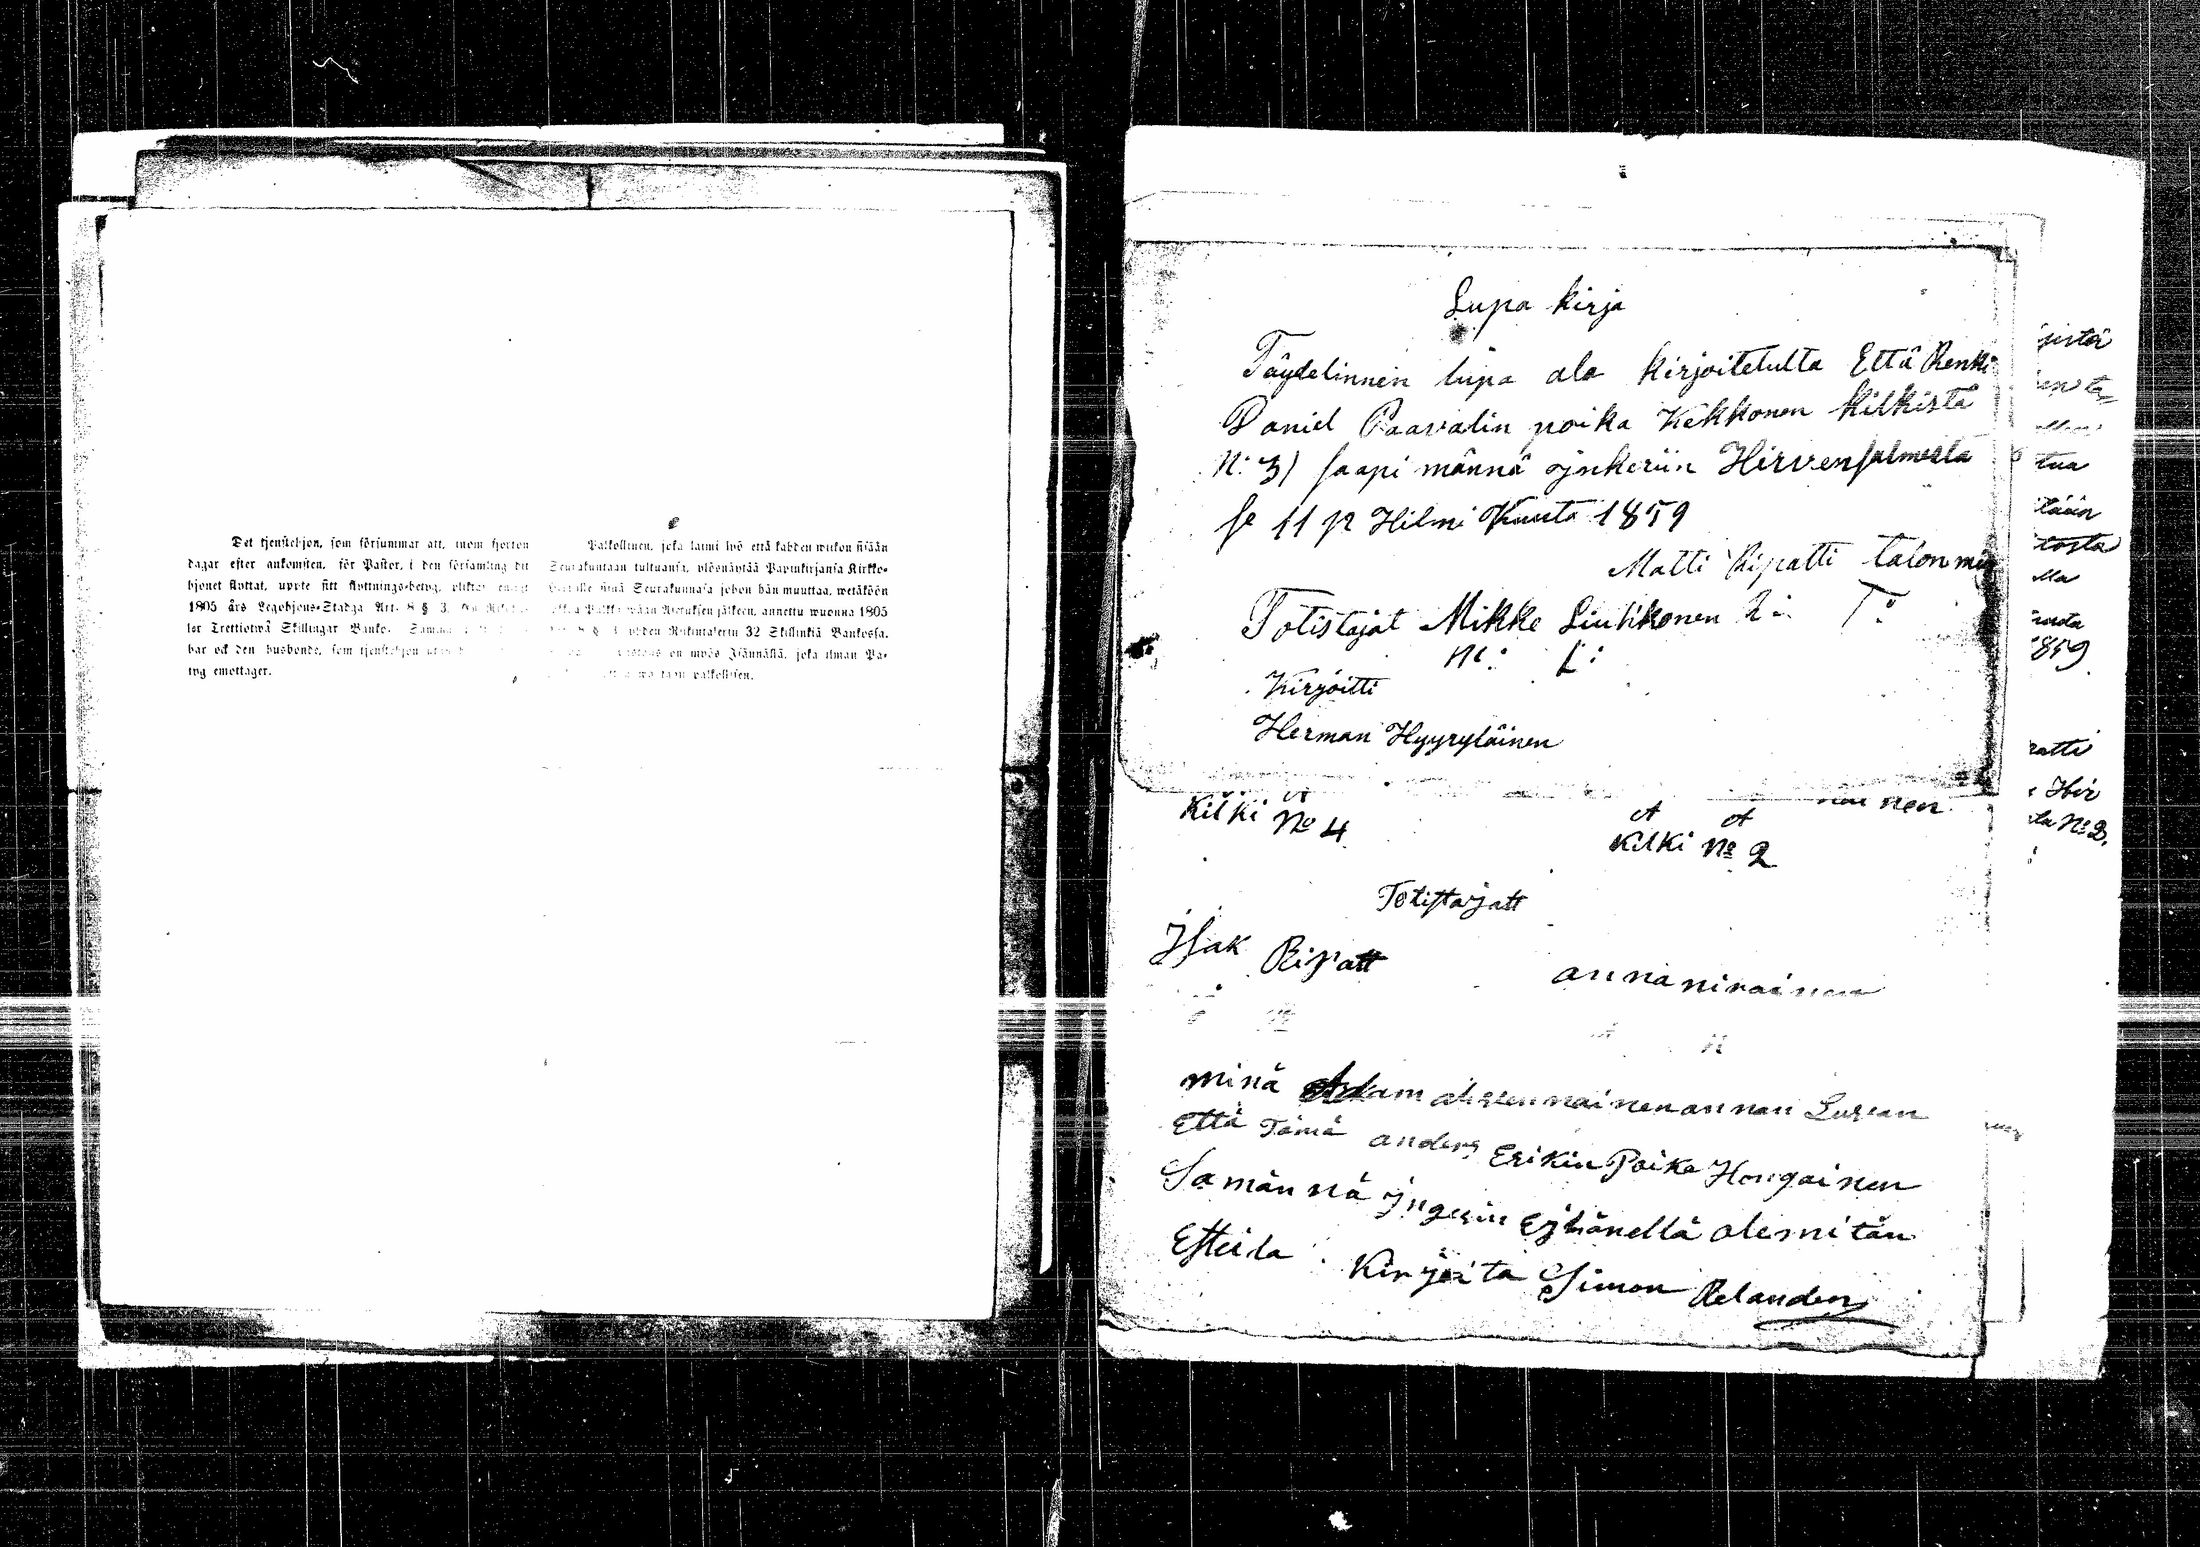 Det tjenstehjon, som försummar att, inom fjorton
dagar efter ankomsten, för Pastor, i den församling dit
hjonet flyttat, uppte sitt flyttnings-betyg, plikte enligt
1805 års Legohjons-Stadga Art. 8 § 3.
lor Trettiotwå Skillingar Banko. Samma
har ock den husbonde, som tjenstehjon utan
tyg emottager.
Palkollinen, joka laimi lyö että kahden wiikon sisään
Seurakuntaan tultuansa, ylösnäyttää Papinkirjansa Kirkko-
siinä Seurakunnasa johon hän muuttaa, wetäköön
Asetuksen jälkeen, annettu wuonna 1805
8 § 3 yhden Riikintalerin 32 Skillinkiä Bankossa.
on myös Isännällä, joka ilman Pa-
palkollisen.
Lupa kirja
Täydelinnen lupa ala kirjoitetulta Että Renki
Daniel Paavalin poika Kekkonen kilkistä
N: 3) saapi männä ijnkeriin Hirvensalmesta
se 11 p Hilmi Kuuta 1859
Matti Ripatti talon
Totistajat Mikke Liukkonen
M: L: T:
Kirjoitti
Herman Hyyryläinen
Kilki No 4
nen
A A
Kilki No 2
Totistajatt
Isak Ripatt
anna
minä Adam annan Luvan
Että Tämä anders Erikin Poika Hongainen
Sa männä Ingerin Ej hänellä ole mitän
Esteita Kirjoita Simon Relander
jistä
tua
tään
tosta
lla
1859
atti
Hir
ta No 2.